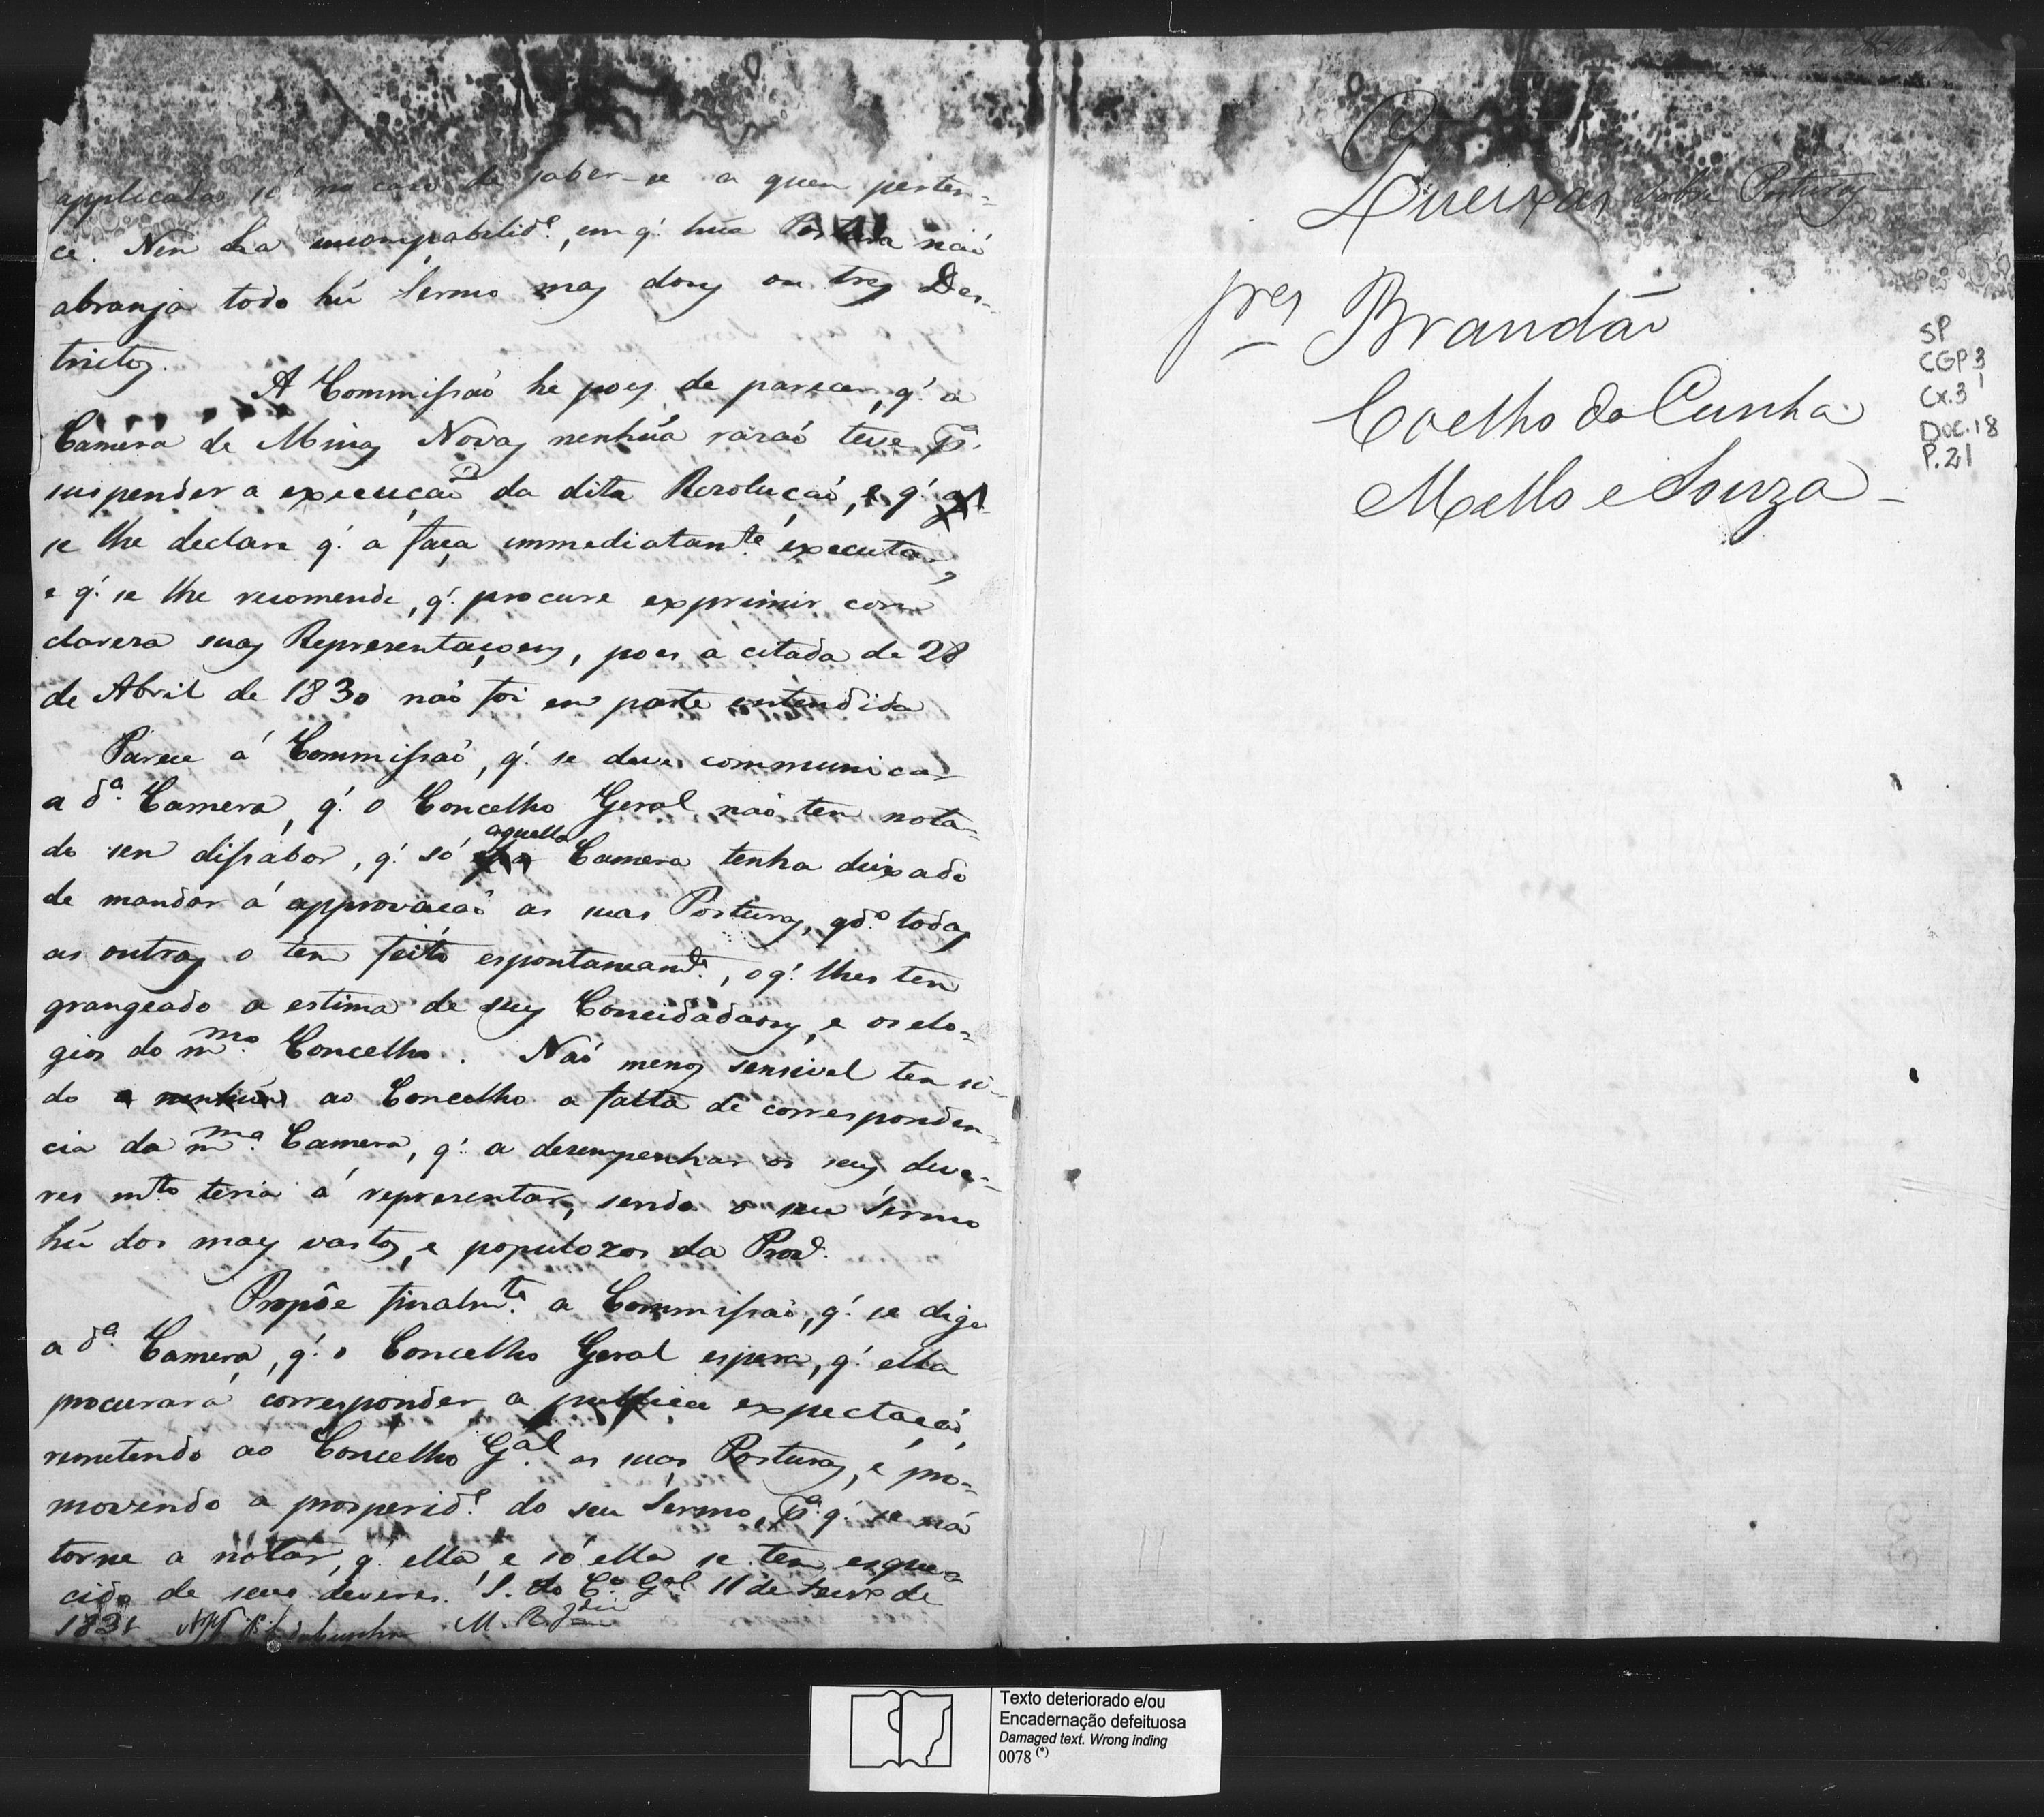 applicadas só no caso de saber-se a quem perten-
ce. Nem ha incompatibilid.e, em q.' hũa Postura naõ
abranja todo hũ Termo mas dous ou tres Des-
trictos.
A Commissaõ he pois de parecer, q.' a
Camera de Minas Novas nenhũa razaõ teve p.a
suspender a execuçaõ da dita Resoluçaõ, e q.'
se lhe declare q.' a faça immediatam.te executar,
e q.' se lhe recomende, q.' procure exprimir com
clareza suas Representaçoens, pois a citada de 28
de Abril de 1830 naõ foi em parte entendida
Parece á Commissaõ, q.' se deve communicar
a d.a Camera, q.' o Concelho Geral naõ tem nota-
do sem dissabor, q.' só aquella Camera tenha deixado
de mandar á approvaçaõ as suas Posturas, qd.o todas
as outras o tem feito espontaneam.te, o q.' lhes tem
grangeado a estima de seus Concidadaons, e os elo-
gios do m.mo Concelho. Naõ menos sensivel tem si-
do a nenhũa ao Concelho a falta de corresponden-
cia da m.ma Camera, q.' a desempenhar os seus deve-
res m.to teria á representar, sendo o seu Termo
hũ dos mais vastos, e populozos da Prov.
Propõe finalm.te a Commissaõ, q.' se diga
a d.a Camera, q.' o Concelho Geral espera, q.' ella
procurará corresponder a publica expectaçaõ,
remetendo ao Concelho G.al as suas Posturas, e pro-
movendo a prosperid.e do seu Termo, p.a q.' se naõ
torne a notar, q.' ella, e só ella se tem esque-
cido de seus deveres. S. do C.o G.al 11 de de
1831 da Cunha M.
Queixas sobre Posturas
p.res Brandaõ
Coelho da Cunha
Mello e Souza
SP
CGP 3
Cx.3
Doc.18
P.21
Texto deteriorado e/ou
Encadernação defeituosa
Damaged text. Wrong inding
0078 (*)